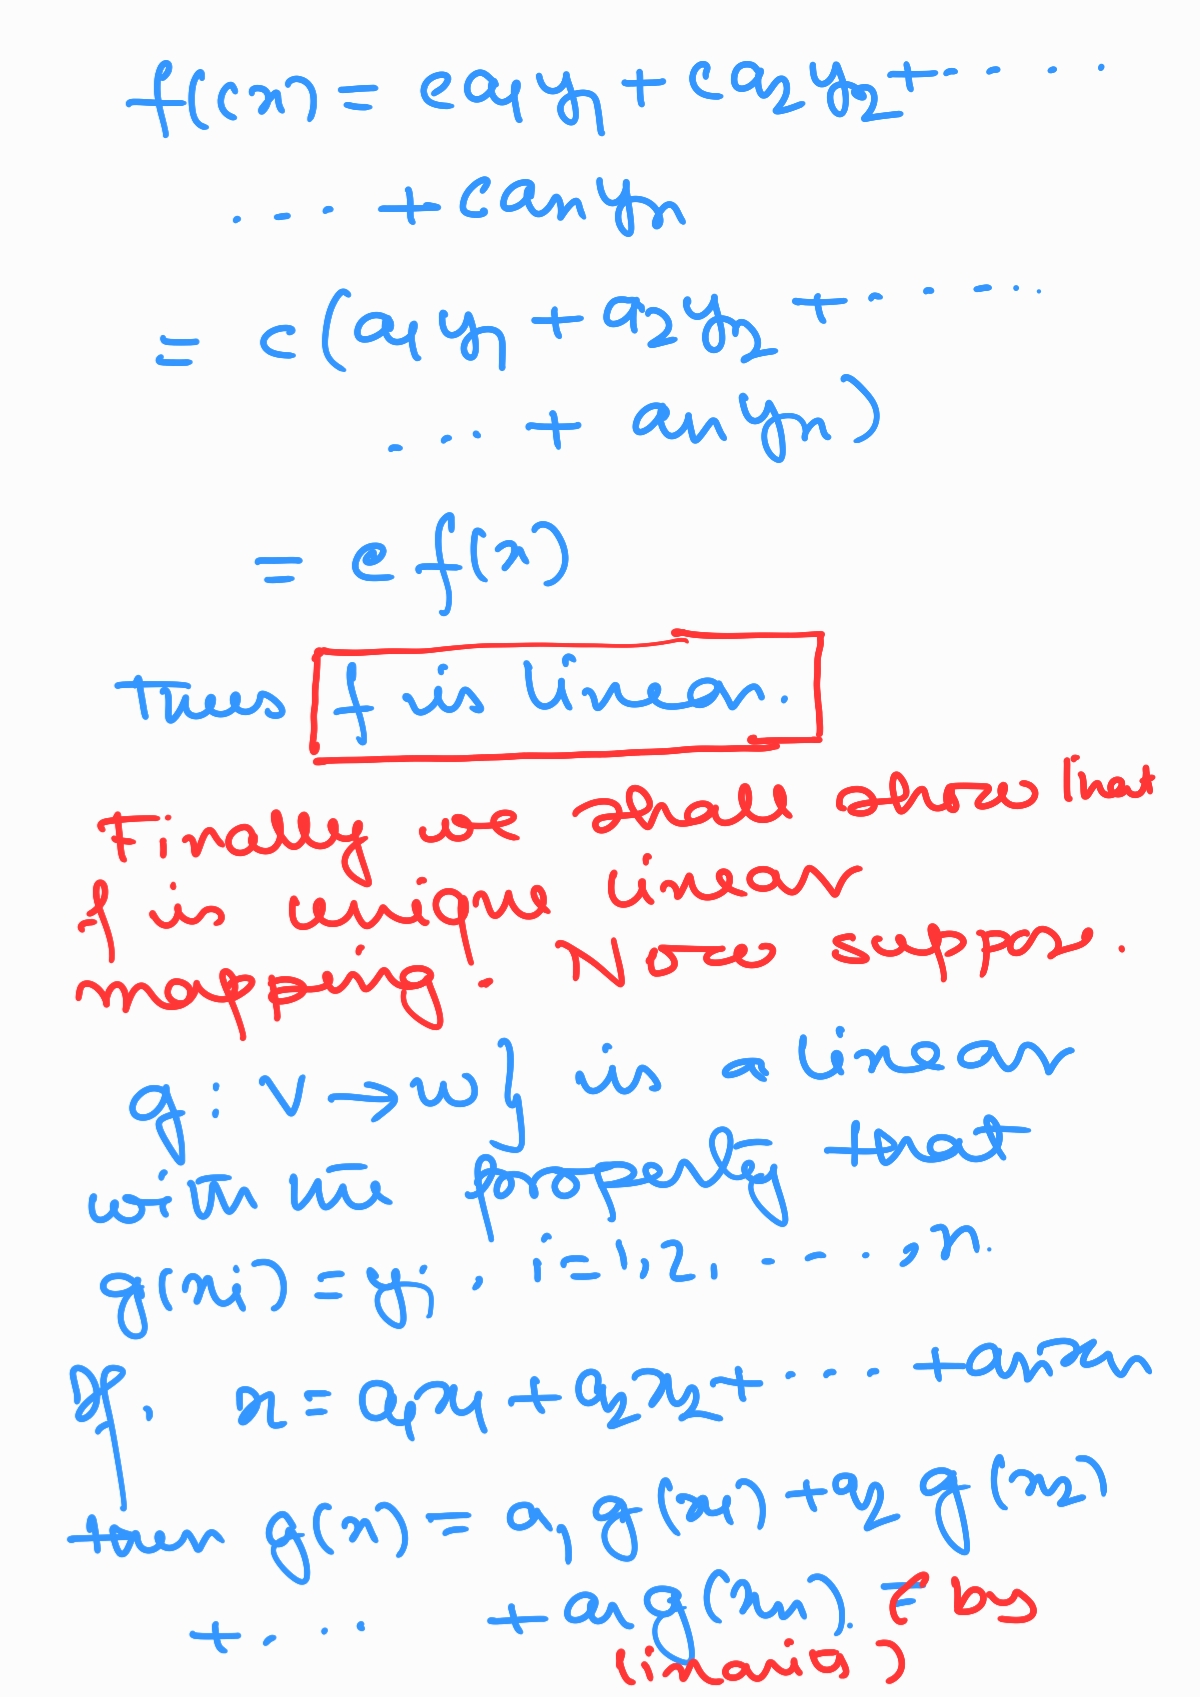 f(cx) = ca₁y₁ + ca₂y₂ + .....
... + canyn
= c(a₁y₁ + a₂y₂ + .....
... + anyn)
= c f(x)
Thus f is linear.
Finally we shall show that
f is unique linear
mapping. Now suppos.
g : V → W} is a linear
with the property that
g(xi) = yi, i = 1, 2, ...., n.
If, x = a₁x₁ + a₂x₂ + ... + anxn
then g(x) = a₁ g(x₁) + a₂ g(x₂)
+ ... + an g(xn). (by